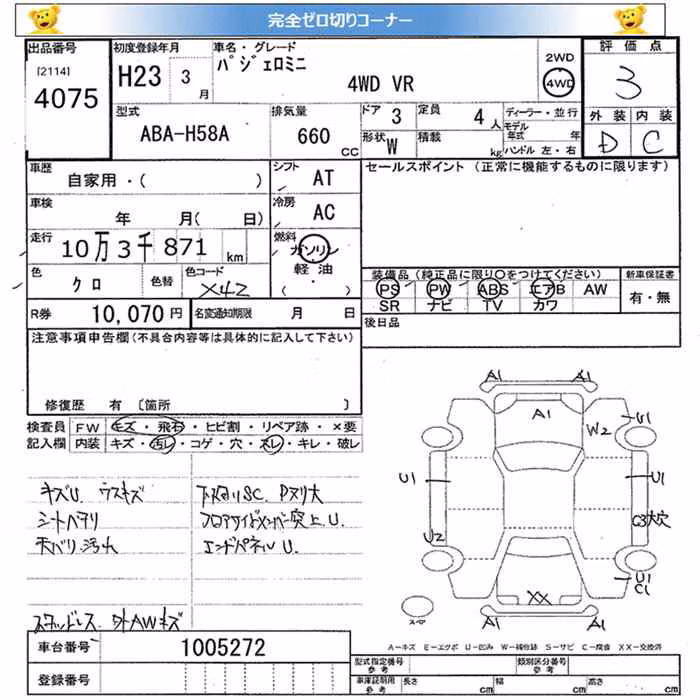 完全ゼロ切りコーナー
出品番号 初度登録年月 車名・グレード 評価点
[2114] H23 3 月 パジェロミニ 2WD
4075 4WD VR 4WD 3
型式 排気量 ドア 3 定員 4 人 ディーラー・並行 外装 内装
ABA-H58A 660 CC 形状 W 積載 kg モデル年式 年 D C
ハンドル 左・右
車歴 自家用・( ) シフト AT セールスポイント (正常に機能するものに限ります)
車検 年 月( 日) 冷房 AC
走行 10万3千871 km 燃料 ガソリン
軽油
( )
色 クロ 色替 色コード X42
装備品 (純正品に限り○をつけてください) 新車保証書
PS PW ABS エアB AW 有・無
SR ナビ TV カワ
R券 10,070 円 名変通知期限 月 日 後日品
注意事項申告欄(不具合内容等は具体的に記入して下さい)
修復歴 有 〔箇所 〕
検査員 FW キズ・飛石・ヒビ割・リペア跡・×要
記入欄 内装 キズ・汚レ・コゲ・穴・スレ・キレ・破レ
キズU. ウスキズ 下廻りSC. Pヌリ大
シートヘタリ フロアサイドメンバー突上U.
天バリ汚れ エンドパネルU.
スタッドレス 外AWキズ
A1 A1
A1 U1
W2
U1 U1
U2 C3大穴
U1
C1
XX
A1 A1
スペア
A-キズ E-エクボ U-凹み W-補修跡 S-サビ C-腐食 XX-交換済
車台番号 1005272
登録番号
型式指定番号 参考 類別区分番号 参考
車庫証明用 参考 長さ cm 幅 cm 高さ cm